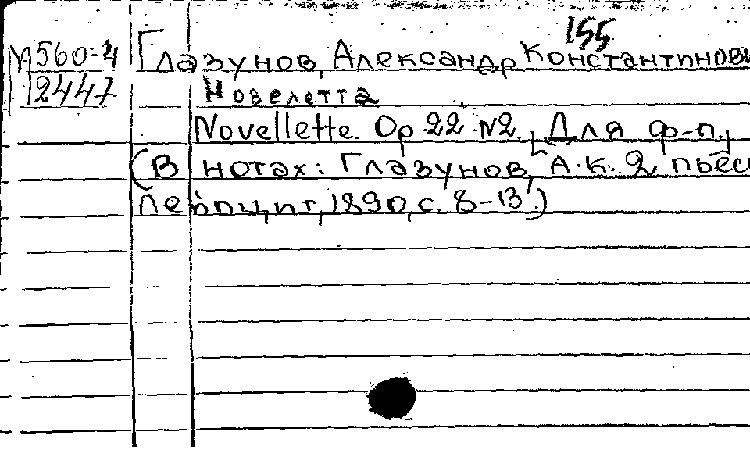 155
М560-4 Глазунов, Александр Константинови
12447 Новелетта
Novellette. Op 22 N2. [Для ф-п.]
(В нотах: Глазунов, А.К. 2 пьес
Лейпциг, 1890, с. 8-13.)